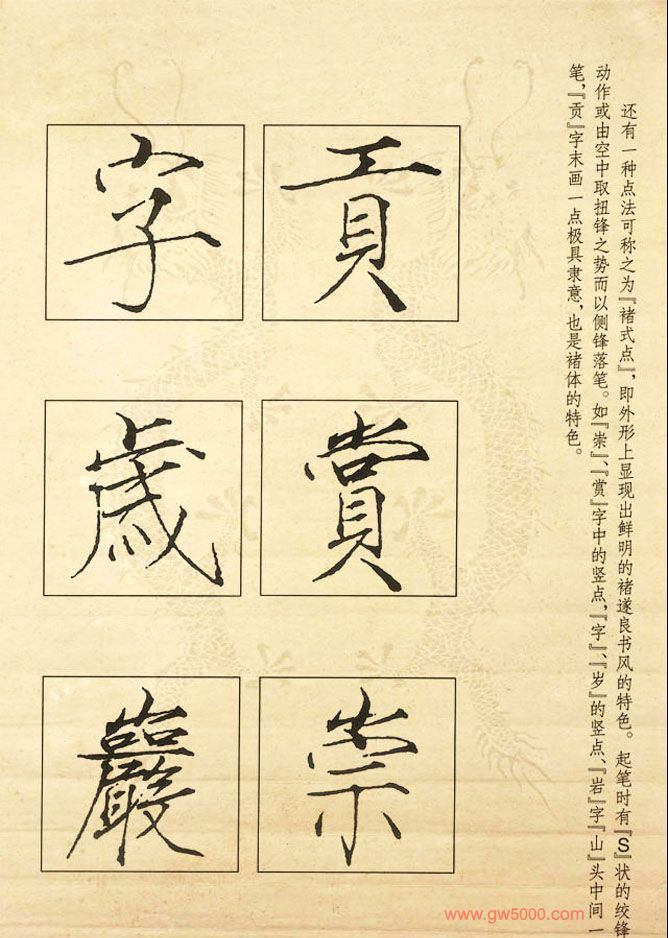 还有一种点法可称之为『褚式点』，即外形上显现出鲜明的褚遂良书风的特色。起笔时有『S』状的绞锋
动作或由空中取扭锋之势而以侧锋落笔。如『崇』、『赏』字中的竖点，『字』、『岁』的竖点、『岩』字『山』头中间一
笔，『贡』字末画一点极具隶意，也是褚体的特色。
貢
賞
崇
字
歲
巖
www.gw5000.com